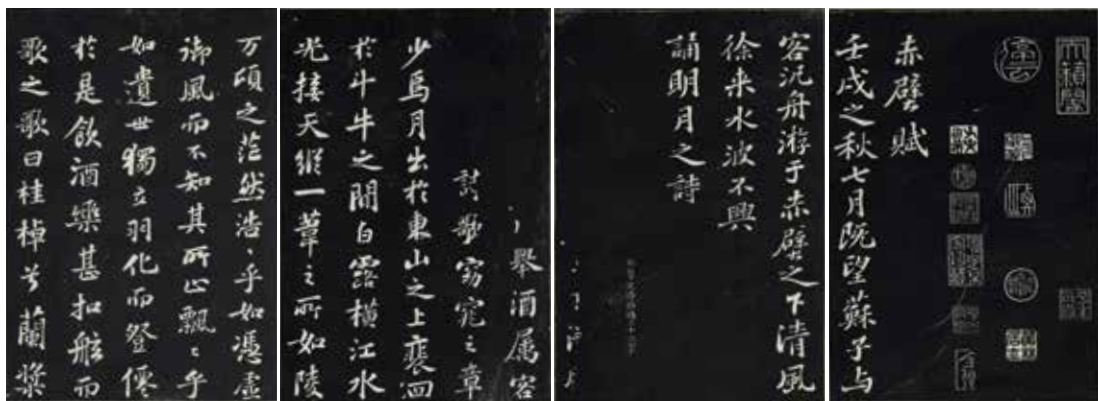 天籟閣
赤壁賦
壬戌之秋七月既望蘇子与
客汎舟游于赤壁之下清風
徐来水波不興
誦明月之詩
舉酒属客
窈窕之章
少焉月出於東山之上裵回
於斗牛之間白露横江水
光接天縱一葦之所如陵
万頃之茫然浩〻乎如憑虚
御風而不知其所止飄〻乎
如遺世獨立羽化而登僊
於是飲酒樂甚扣舷而
歌之歌曰桂棹兮蘭槳